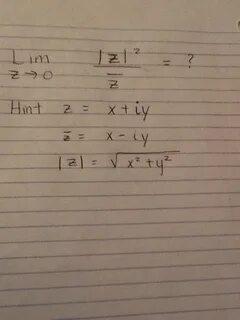 Lim z→0 |z|² / z̄ = ?
Hint z = x + iy
z̄ = x - iy
|z| = √(x² + y²)